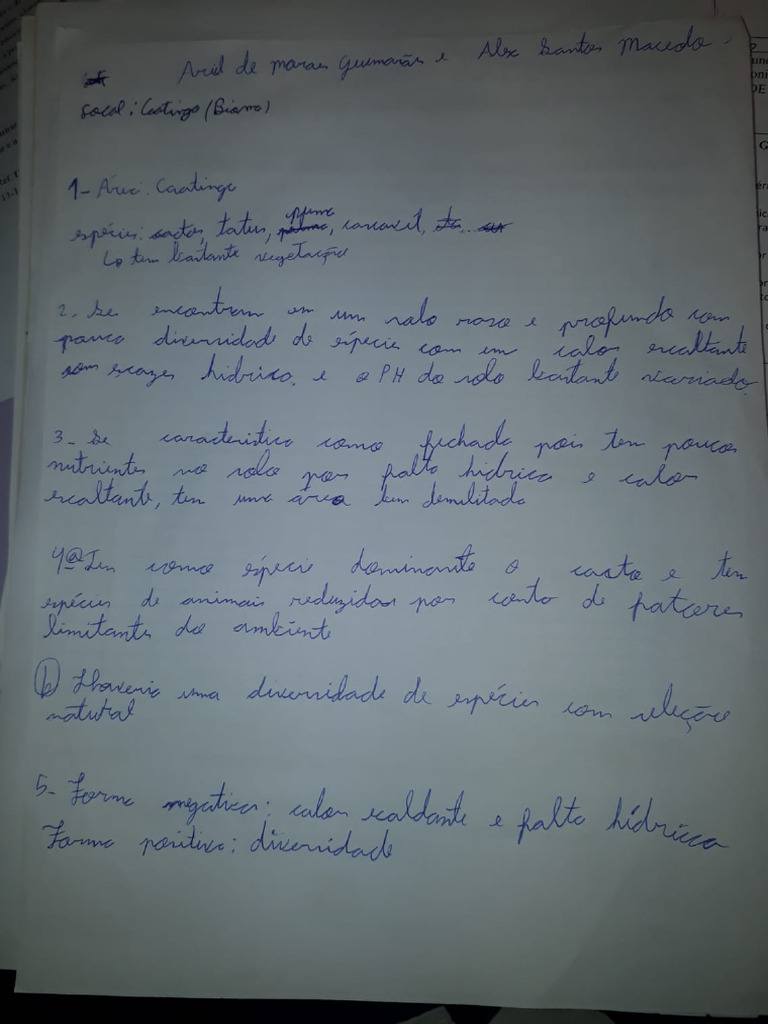 Ariel de Moraes Guimarães e Alex Santos Macedo
Local: Caatinga (Bioma)
1- Área: Caatinga
espécie: cactos, tatus, puma, carcará,
↳ tem bastante vegetação
2. Se encontram em um solo raso e profundo com
pouca diversidade de espécie com um calor escaltante
com escazes hídrica, e o PH do solo bastante variado
3- Se característica como fechada pois tem poucos
nutrientes no solo por falta hídrica e calor
escaltante, tem uma área bem demilitada
4@ Tem como espécie dominante o cacto e tem
espécies de animais reduzidas por conta de fatores
limitantes do ambiente
b) Haveria uma diversidade de espécies com seleção
natural
5- Forma negativa: calor escaldante e falta hídrica
Forma positiva: diversidade